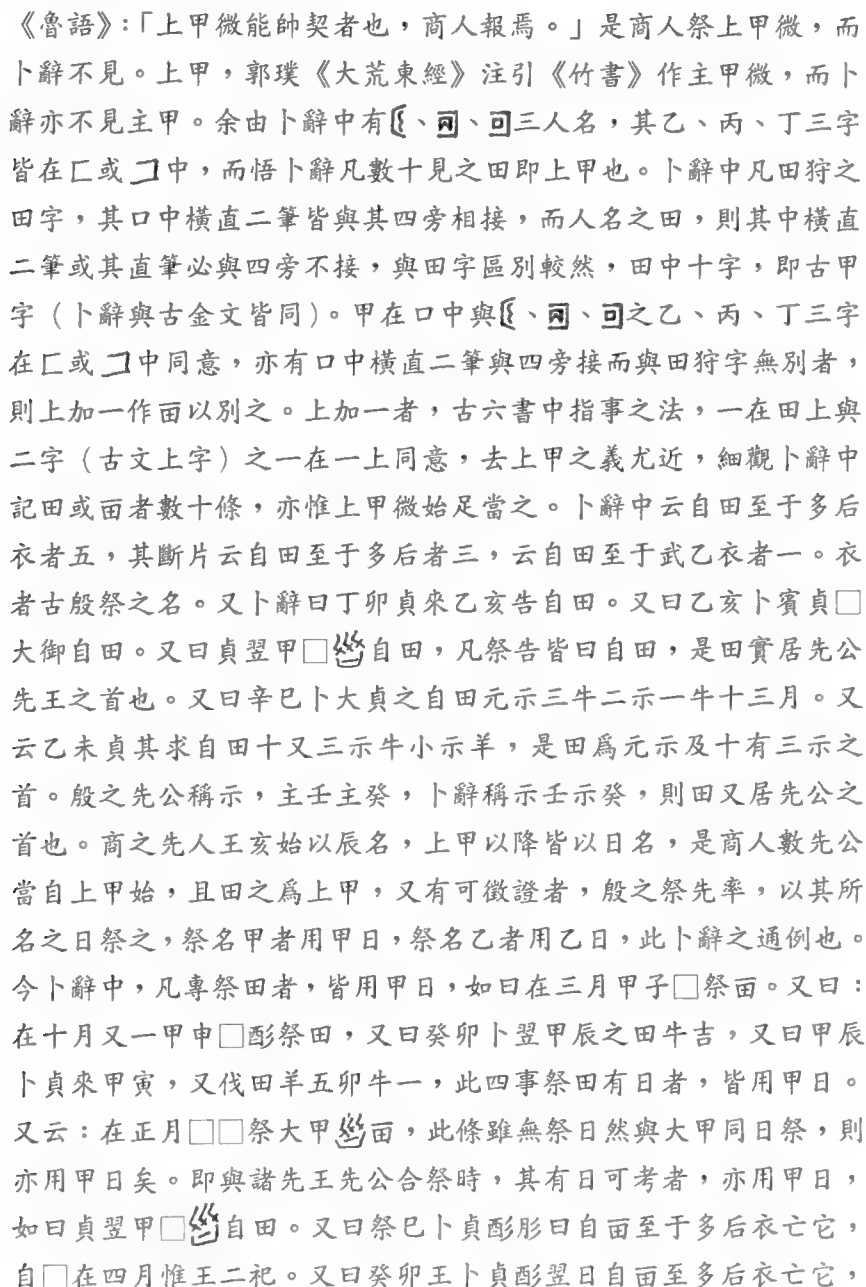 《魯語》:「上甲微能帥契者也,商人報焉。」是商人祭上甲微,而
卜辭不見。上甲,郭璞《大荒東經》注引《竹書》作主甲微,而卜
辭亦不見主甲。余由卜辭中有、、三人名,其乙、丙、丁三字
皆在匚或中,而悟卜辭凡數十見之田即上甲也。卜辭中凡田狩之
田字,其口中橫直二筆皆與其四旁相接,而人名之田,則其中橫直
二筆或其直筆必與四旁不接,與田字區別較然,田中十字,即古甲
字(卜辭與古金文皆同)。甲在口中與、、之乙、丙、丁三字
在匚或中同意,亦有口中橫直二筆與四旁接而與田狩字無別者,
則上加一作畗以別之。上加一者,古六書中指事之法,一在田上與
二字(古文上字)之一在一上同意,去上甲之義尤近,細觀卜辭中
記田或者數十條,亦惟上甲微始足當之。卜辭中云自田至于多后
衣者五,其斷片云自田至于多后者三,云自田至于武乙衣者一。衣
者古殷祭之名。又卜辭曰丁卯貞來乙亥告自田。又曰乙亥卜賓貞□
大御自田。又曰貞翌甲□自田,凡祭告皆曰自田,是田實居先公
先王之首也。又曰辛巳卜大貞之自田元示三牛二示一牛十三月。又
云乙未貞其求自田十又三示牛小示羊,是田爲元示及十有三示之
首。殷之先公稱示,主壬主癸,卜辭稱示壬示癸,則田又居先公之
首也。商之先人王亥始以辰名,上甲以降皆以日名,是商人數先公
當自上甲始,且田之爲上甲,又有可徵證者,殷之祭先率,以其所
名之日祭之,祭名甲者用甲日,祭名乙者用乙日,此卜辭之通例也。
今卜辭中,凡專祭田者,皆用甲日,如曰在三月甲子□祭。又曰:
在十月又一甲申□酌祭田,又曰癸卯卜翌甲辰之田牛吉,又曰甲辰
卜貞來甲寅,又伐田羊五卯牛一,此四事祭田有日者,皆用甲日。
又云:在正月□□祭大甲,此條雖無祭日然與大甲同日祭,則
亦用甲日矣。即與諸先王先公合祭時,其有日可考者,亦用甲日,
如曰貞翌甲□自田。又曰祭巳卜貞酌肜曰自至于多后衣亡它,
自□在四月惟王二祀。又曰癸卯王卜貞酌翌日自至多后衣亡它,